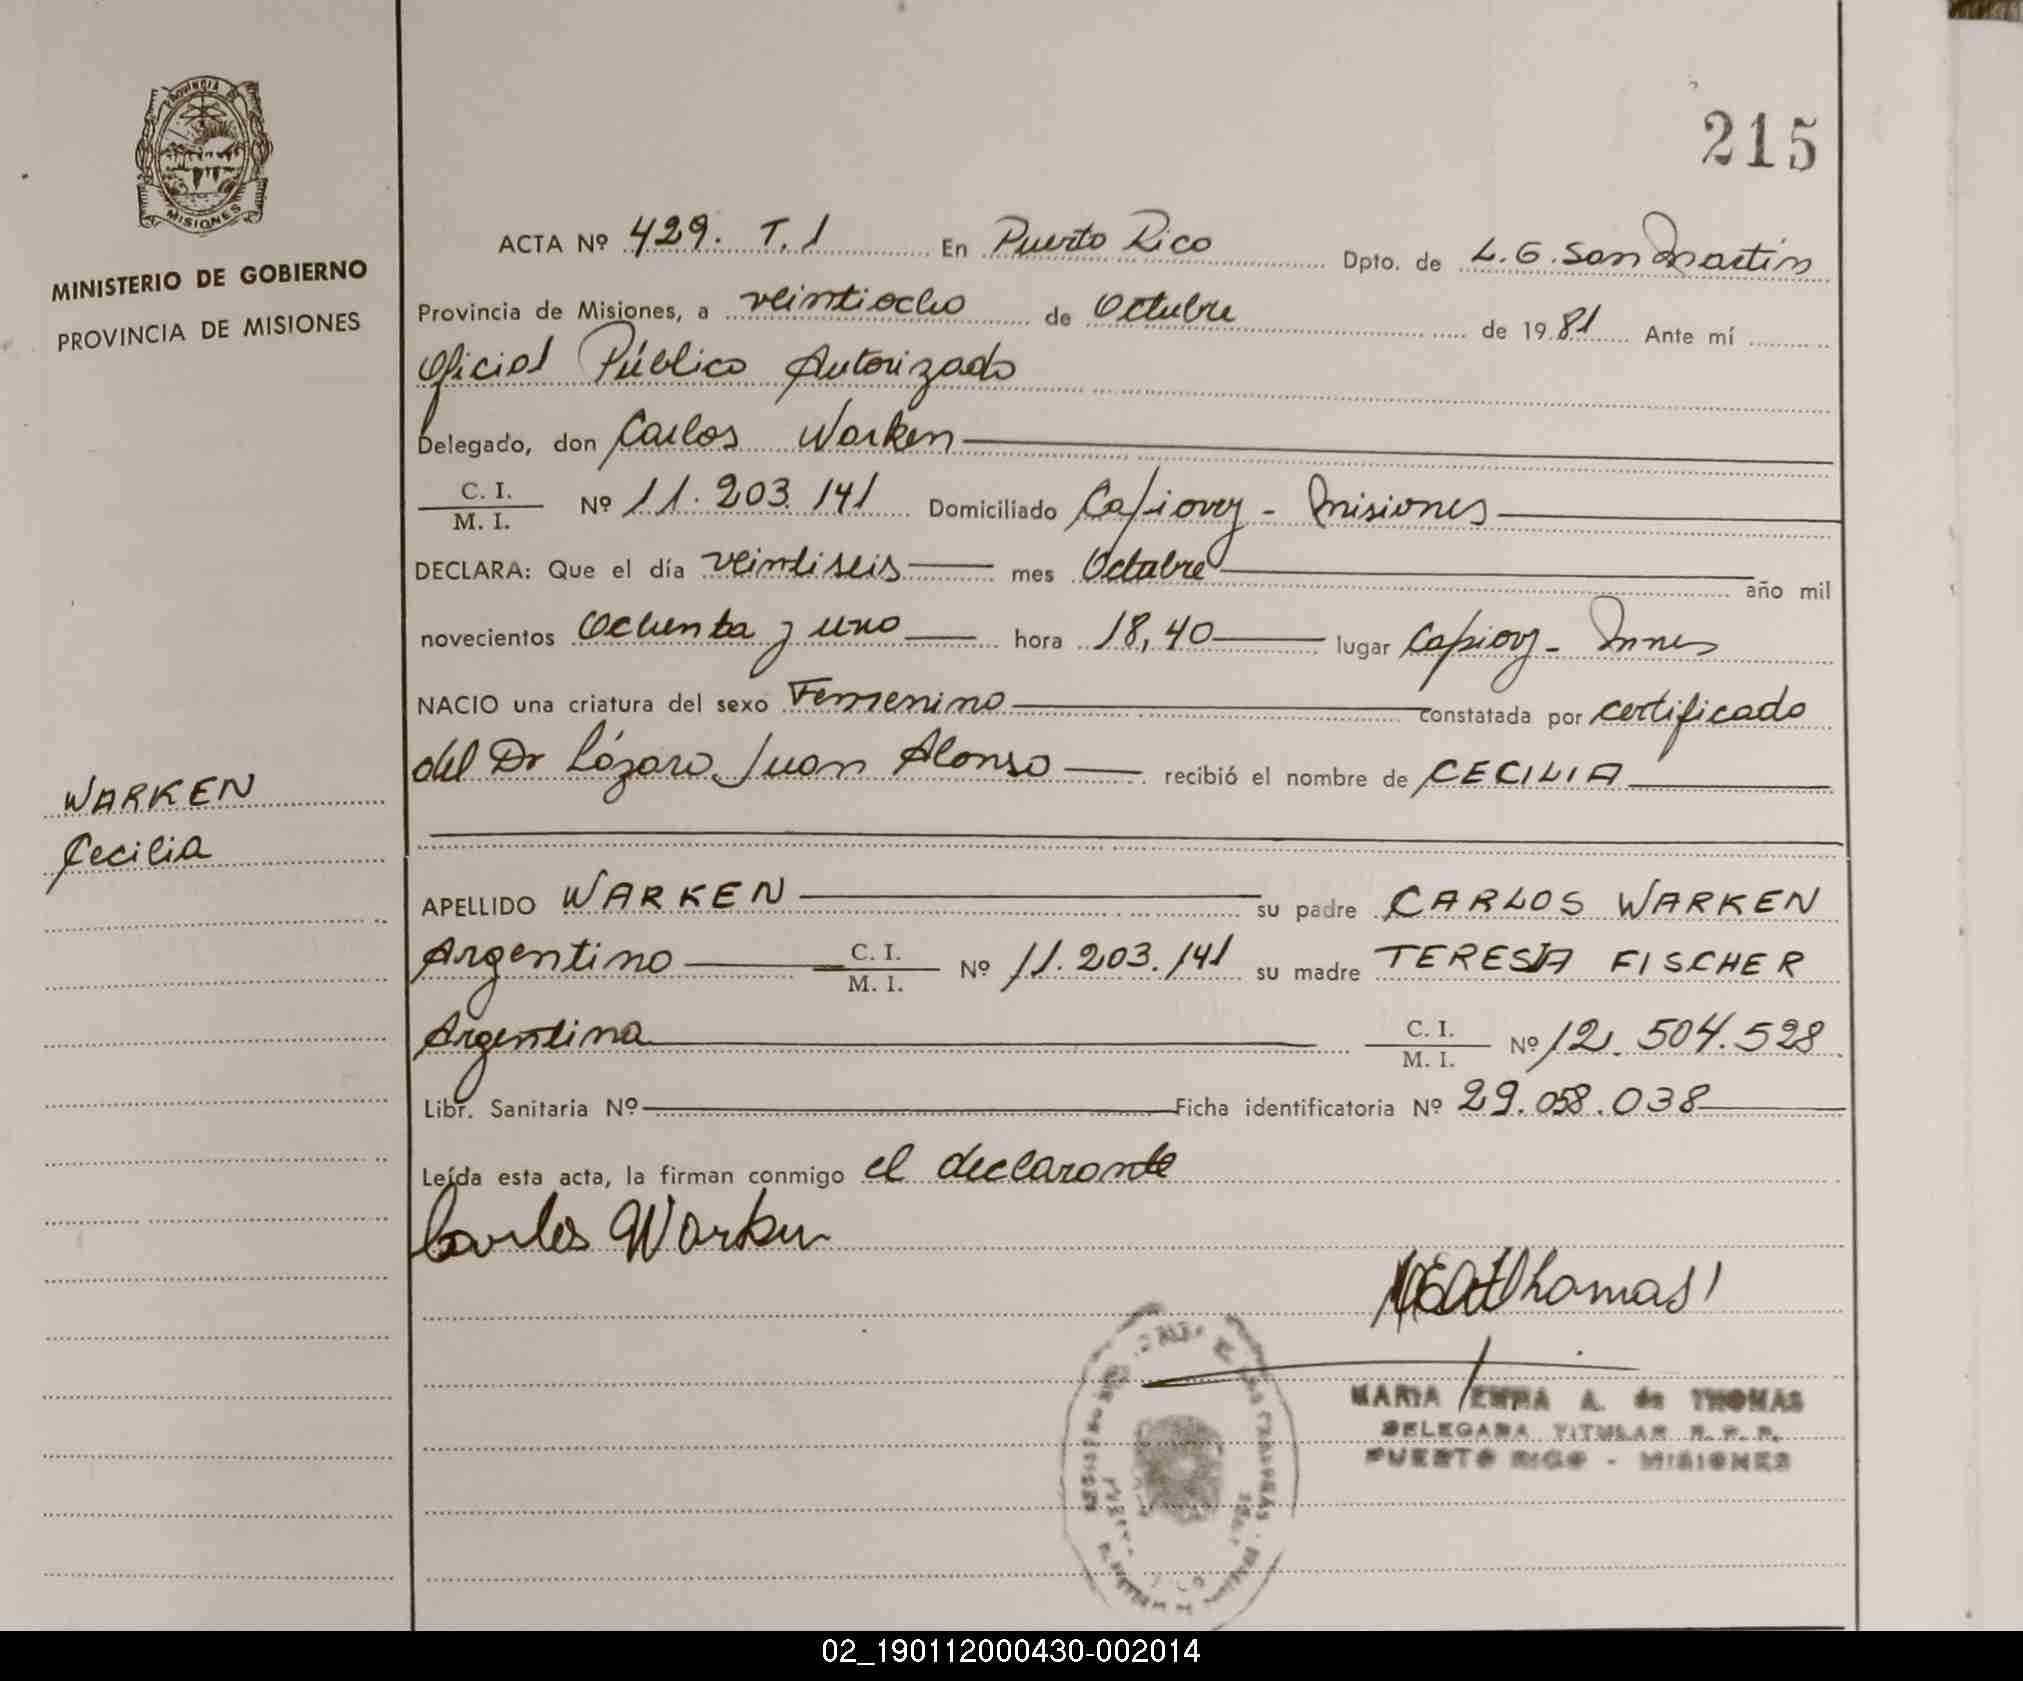 PROVINCIA DE
MISIONES
MINISTERIO DE GOBIERNO
PROVINCIA DE MISIONES
215
ACTA Nº 429. T. 1 En Puerto Rico Dpto. de L. G. San Martin
Provincia de Misiones, a veintiocho de Octubre de 1981 Ante mí
Oficial Público Autorizado
Delegado, don Carlos Warken
C. I.
M. I. Nº 11. 203. 141 Domiciliado Capiovy - Misiones
DECLARA: Que el día veintiseis mes Octubre año mil
novecientos Ochenta y uno hora 18,40 lugar Capiovy - Mnes
NACIO una criatura del sexo Femenino constatada por certificado
del Dr Lázaro Juan Alonso recibió el nombre de CECILIA
WARKEN
Cecilia
APELLIDO WARKEN su padre CARLOS WARKEN
Argentino C. I.
M. I. Nº 11. 203. 141 su madre TERESIA FISCHER
Argentina C. I.
M. I. Nº 12. 504. 528
Libr. Sanitaria Nº Ficha identificatoria Nº 29. 058. 038
Leída esta acta, la firman conmigo el declarante
Carlos Warken
Thomas
MARIA EMMA A. de THOMAS
DELEGADA TITULAR R. P. P.
PUERTO RICO - MISIONES
02_190112000430-002014